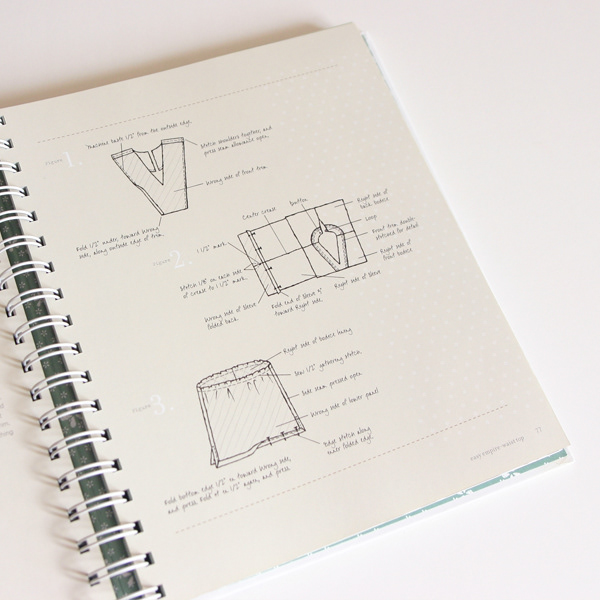 Figure 1.
Machine baste 1/2" from the outside edge.
Stitch shoulders together, and
press seam allowance open.
Wrong side of front trim
Fold 1/2" under, toward Wrong
side, along outside edge of trim.
Figure 2.
Center crease
Button
Right side of
back bodice
Loop
Front trim double-
stitched for detail
Right side of
front bodice
1 1/2" mark
Stitch 1/8" on each side
of crease to 1 1/2" mark.
Wrong side of sleeve
folded back.
Fold end of sleeve 1/2"
toward Right side.
Right side of sleeve
Figure 3.
Right side of bodice lining
Sew 1/2" gathering stitch.
Side seam pressed open.
Wrong side of lower panel
Edge stitch along
inner folded edge.
Fold bottom edge 1/2" in toward Wrong side,
and press. Fold it in 1/2" again, and press.
easy empire-waist top 77
thing